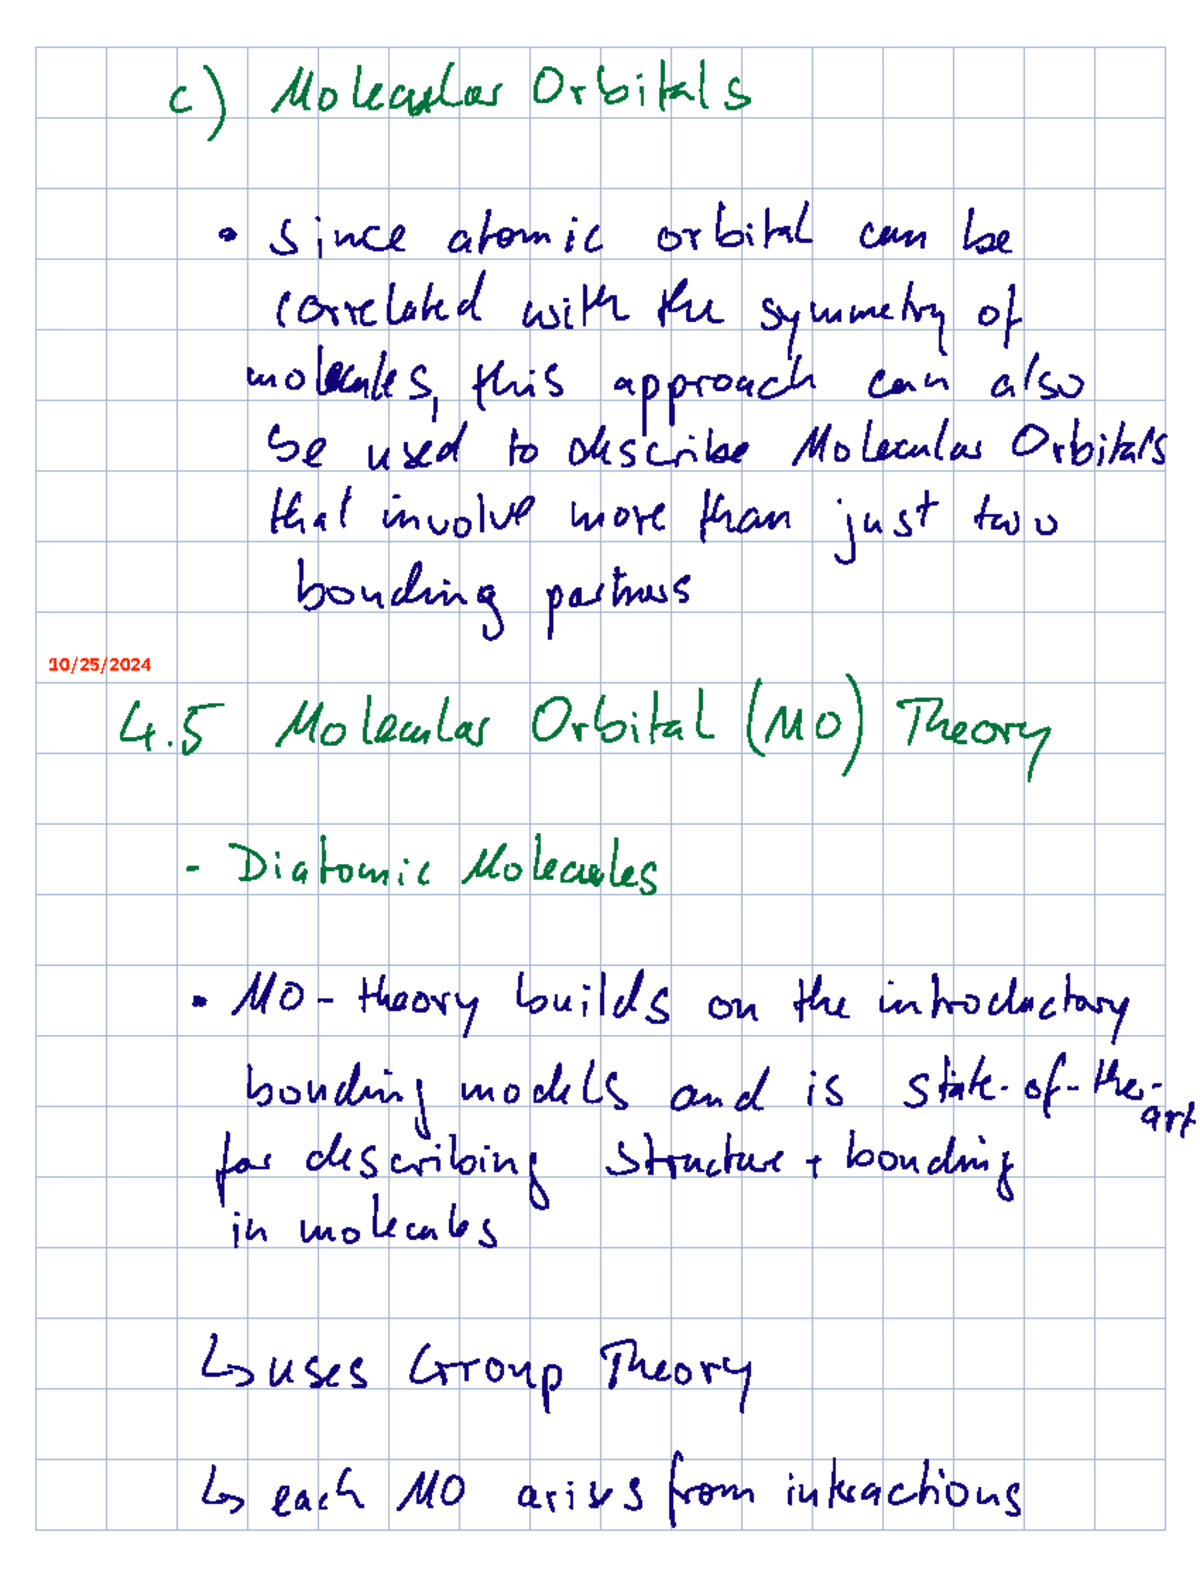 c) Molecular Orbitals
• Since atomic orbital can be
correlated with the symmetry of
molecules, this approach can also
be used to describe Molecular Orbitals
that involve more than just two
bonding partners
10/25/2024
4.5 Molecular Orbital (MO) Theory
- Diatomic Molecules
• MO-theory builds on the introductory
bonding models and is state-of-the-art
for describing structure + bonding
in molecules
↳ uses Group Theory
↳ each MO arises from interactions